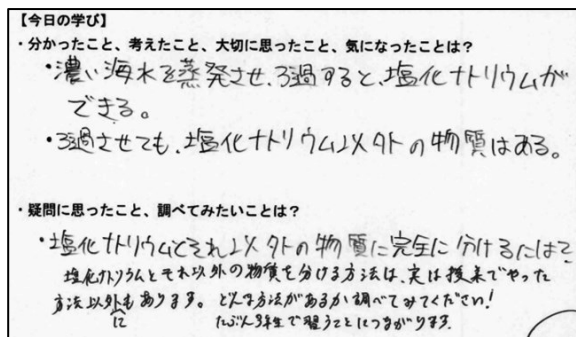 【今日の学び】
・分かったこと、考えたこと、大切に思ったこと、気になったことは？
・濃い海水を蒸発させ、ろ過すると、塩化ナトリウムが
できる。
・ろ過させても、塩化ナトリウム以外の物質はある。
・疑問に思ったこと、調べてみたいことは？
・塩化ナトリウムとそれ以外の物質に完全に分けるには？
塩化ナトリウムとそれ以外の物質を分ける方法は、実は授業でやった
方法以外にもあります。どんな方法があるか調べてみてください！
たぶん3年生で習うことにつながります。